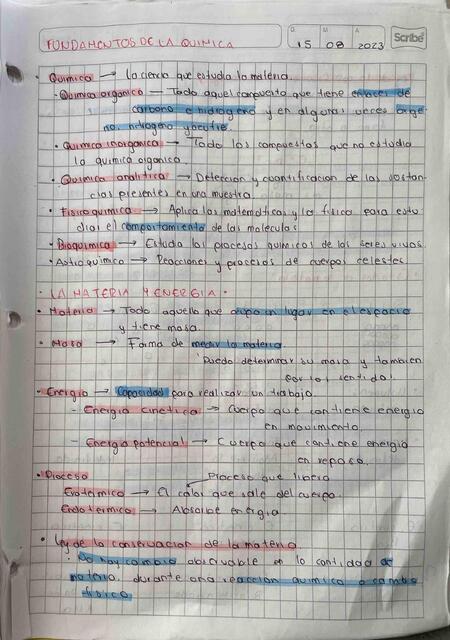 FUNDAMENTOS DE LA QUIMICA
D M A
15 08 2023
Scribe
• Quimica → La ciencia que estudia la materia.
- Quimica organica → Todo aquel compuesto que tiene enlaces de
carbono e hidrogeno y en algunas veces oxige
no, nitrogeno y azufre.
• Quimica inorganica → Todo los compuestos que no estudia
la quimica organica.
• Quimica analitica → Deteccion y cuantificacion de las sustan
cias presentes en una muestra.
• Fisicoquimica → Aplica las matematicas y la fisica para estu
diar el comportamiento de las moleculas
• Bioquimica → Estudia los procesos quimicos de los seres vivos.
• Astroquimica → Reacciones y procesos de cuerpos celestes.
• LA MATERIA Y ENERGIA •
• Materia → Todo aquello que ocupa un lugar en el espacio
y tiene masa.
• Masa → Forma de medir la materia
Puedo determinar su masa y tambien
por los sentido.
• Energia → Capacidad para realizar un trabajo.
- Energia cinetica → Cuerpo que contiene energia
en movimiento.
- Energia potencial → Cuerpo que contiene energia
en reposo.
• Proceso Proceso que libera
Exotermico → El calor que sale del cuerpo.
Endotermico → Absorbe energia
• Ley de la conservacion de la materia
• No hay cambio observable en la cantidad de
materia, durante una reaccion quimica o cambio
fisico